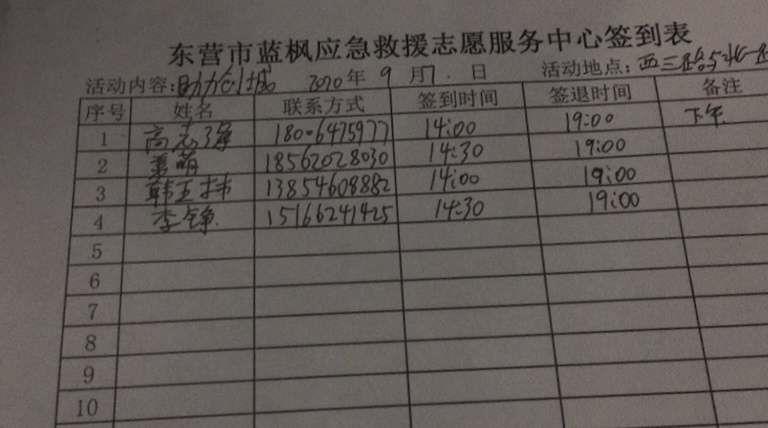 东营市蓝枫应急救援志愿服务中心签到表
活动内容:助力创城 2020年 9 月7. 日 活动地点:西三路与北一路
序号 姓名 联系方式 签到时间 签退时间 备注
1 高志强 18006475977 14:00 19:00 下午
2 萌 18562028030 14:30 19:00
3 韩玉 13854609882 14:00 19:00
4 李铮 15166241425 14:30 19:00
5
6
7
8
9
10